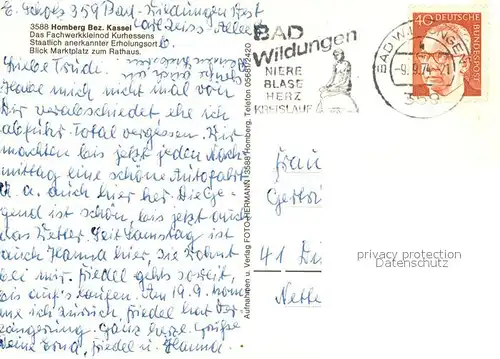 E. 359 Bad Wildungen West
3588 Homberg Bez. Kassel
Das Fachwerkkleinod Kurhessens
Staatlich anerkannter Erholungsort
Blick Marktplatz zum Rathaus.
Liebe Trude.
Habe mich nicht mal von
Dir verabschiedet, ehe ich
abfuhr. Total vergessen. Wir
machten bis jetzt jeden Nach
mittag eine schöne Autofahrt
u. a. auch hier her. Die Ge-
gend ist schön, bis jetzt auch
das Wetter. Seit Samstag ist
auch Hanna hier, sie wohnt
bei mir. Friedel gehts soweit,
bis auf's Laufen. Am 19.9. komm
en wir zurück, Friedel hat Ver-
längerung. Ganz herzl. Grüße
Deine Erna, Friedel u. Hanna
Aufnahmen u. Verlag FOTO-HERMANN 3588 Homberg, Telefon 05681/2420
BAD
Wildungen
NIERE
BLASE
HERZ
KREISLAUF
BAD WILDUNGEN
-9.9.74-21
359
40
DEUTSCHE
BUNDESPOST
Frau
41
privacy protection
Datenschutz